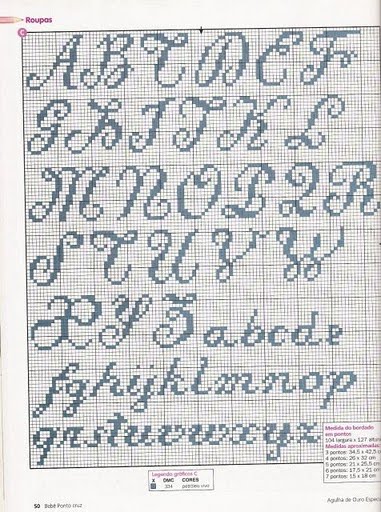 Roupas
C
A B C D E F
G H I J K L
M N O P Q R
S T U V W
X Y Z a b c d e
f g h i j k l m n o p
q r s t u v w x y z
Medida do bordado
em pontos
104 largura x 127 altura
Medidas aproximadas
3 pontos: 34,5 x 42,5 c
4 pontos: 26 x 32 cm
5 pontos: 21 x 25,5 cm
6 pontos: 17,5 x 21 cm
7 pontos: 15 x 18 cm
Legenda gráficos C
X DMC CORES
334
50 Bebê Ponto cruz
Agulha de Ouro Especial